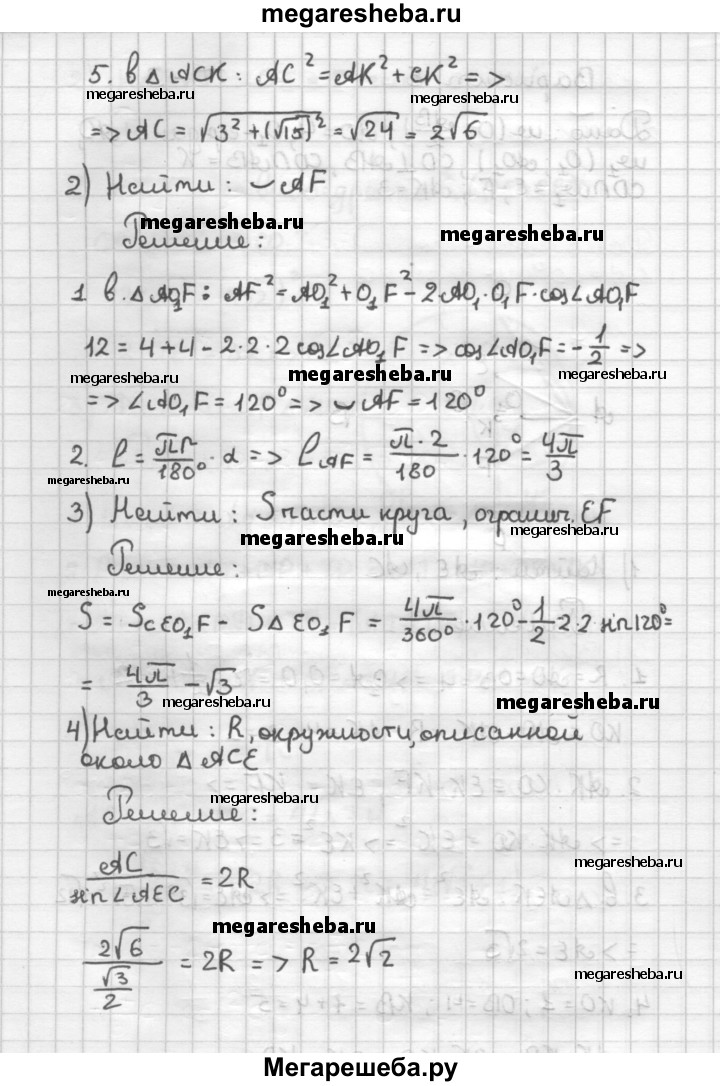 megaresheba.ru
5. В △ ACK : AC² = AK² + CK² =>
megaresheba.ru megaresheba.ru
=> AC = √(3² + (√15)²) = √24 = 2√6
2) Найти : ◡AF
megaresheba.ru
megaresheba.ru
Решение :
1 В △ AO₁F : AF² = AO₁² + O₁F² - 2AO₁·O₁F·cos∠AO₁F
12 = 4 + 4 - 2·2·2 cos∠AO₁F => cos∠AO₁F = -1/2 =>
megaresheba.ru megaresheba.ru megaresheba.ru
=> ∠AO₁F = 120° => ◡AF = 120°
2. ℓ = πr/180° · α => ℓAF = π·2/180 · 120° = 4π/3
megaresheba.ru
3) Найти : S части круга, огранич. EF
megaresheba.ru megaresheba.ru
Решение :
megaresheba.ru
S = Sc EO₁F - S△ EO₁F = 4π/360° · 120° - 1/2 · 2·2 sin120° =
= 4π/3 - √3
megaresheba.ru megaresheba.ru
4) Найти : R, окружности, описанной
около △ ACE
megaresheba.ru
Решение :
megaresheba.ru
AC/sin∠AEC = 2R
megaresheba.ru
2√6/(√3/2) = 2R => R = 2√2
megaresheba.ru
Мегарешеба.ру